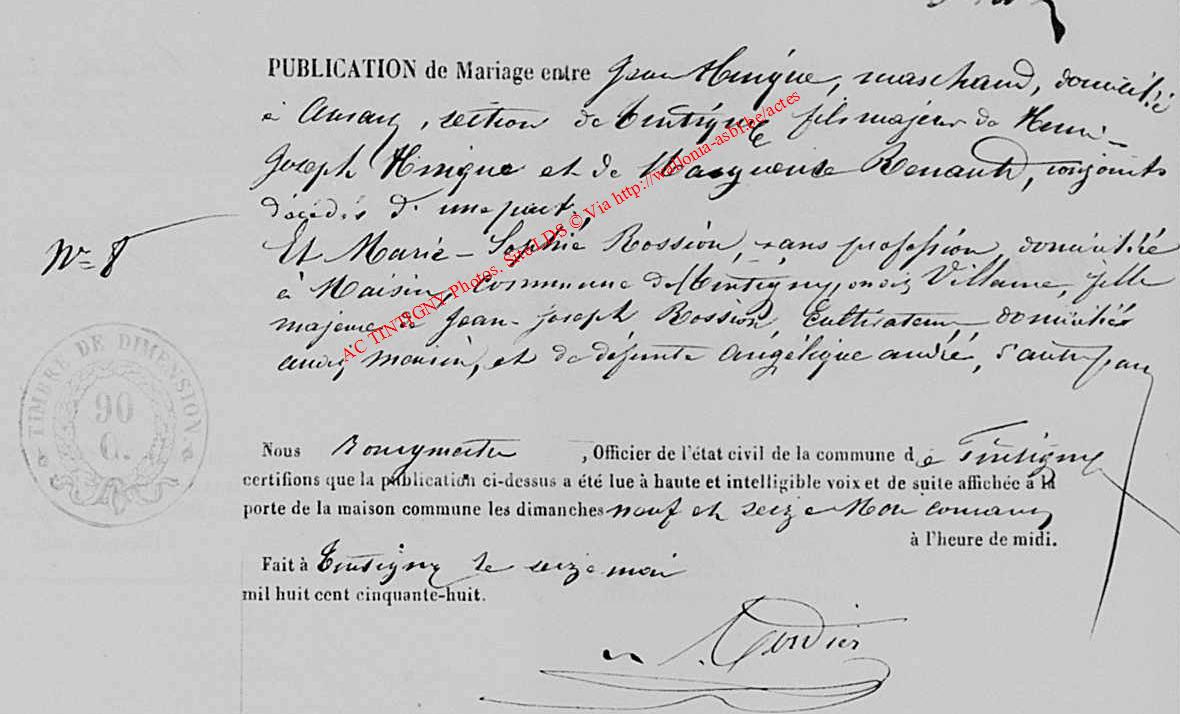 PUBLICATION de Mariage entre Jean Hinique, marchand, domicilié
à Ansart, section de Tintigny, fils majeur de Henri-
Joseph Hinique et de Marguerite Renauld, conjoints
décédés d'une part.
N° 8
Et Marie-Sophie Rossion, sans profession, domiciliée
à Commune de Tintigny, fille
majeure de Jean-Joseph Rossion, Cultivateur, domicilié
et de défunte angélique andré, d'autre part
TIMBRE DE DIMENSION
90
C.
Nous Bourgmestre, Officier de l'état civil de la commune de Tintigny
certifions que la publication ci-dessus a été lue à haute et intelligible voix et de suite affichée à la
porte de la maison commune les dimanches neuf et seize Mai courant
à l'heure de midi.
Fait à Tintigny le seize mai
mil huit cent cinquante-huit.
AC TINTIGNY Photos. Site LDS © Via http://wallonia-asbl.be/actes